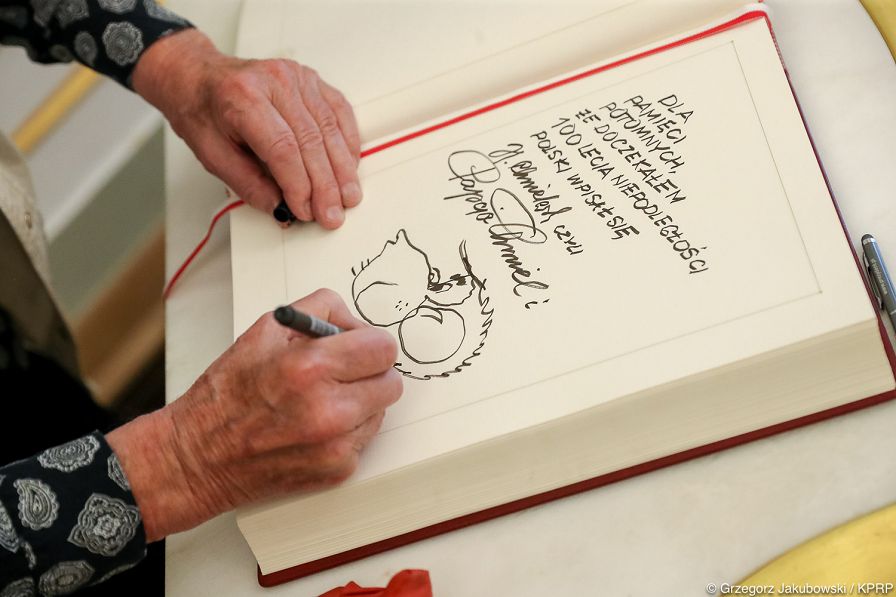 DLA
PAMIĘCI
POTOMNYCH,
ŻE DOCZEKAŁEM
100 LECIA NIEPODLEGŁOŚCI
POLSKI WPISAŁ SIĘ
H. czyli
Papcio Chmiel i
© Grzegorz Jakubowski / KPRP